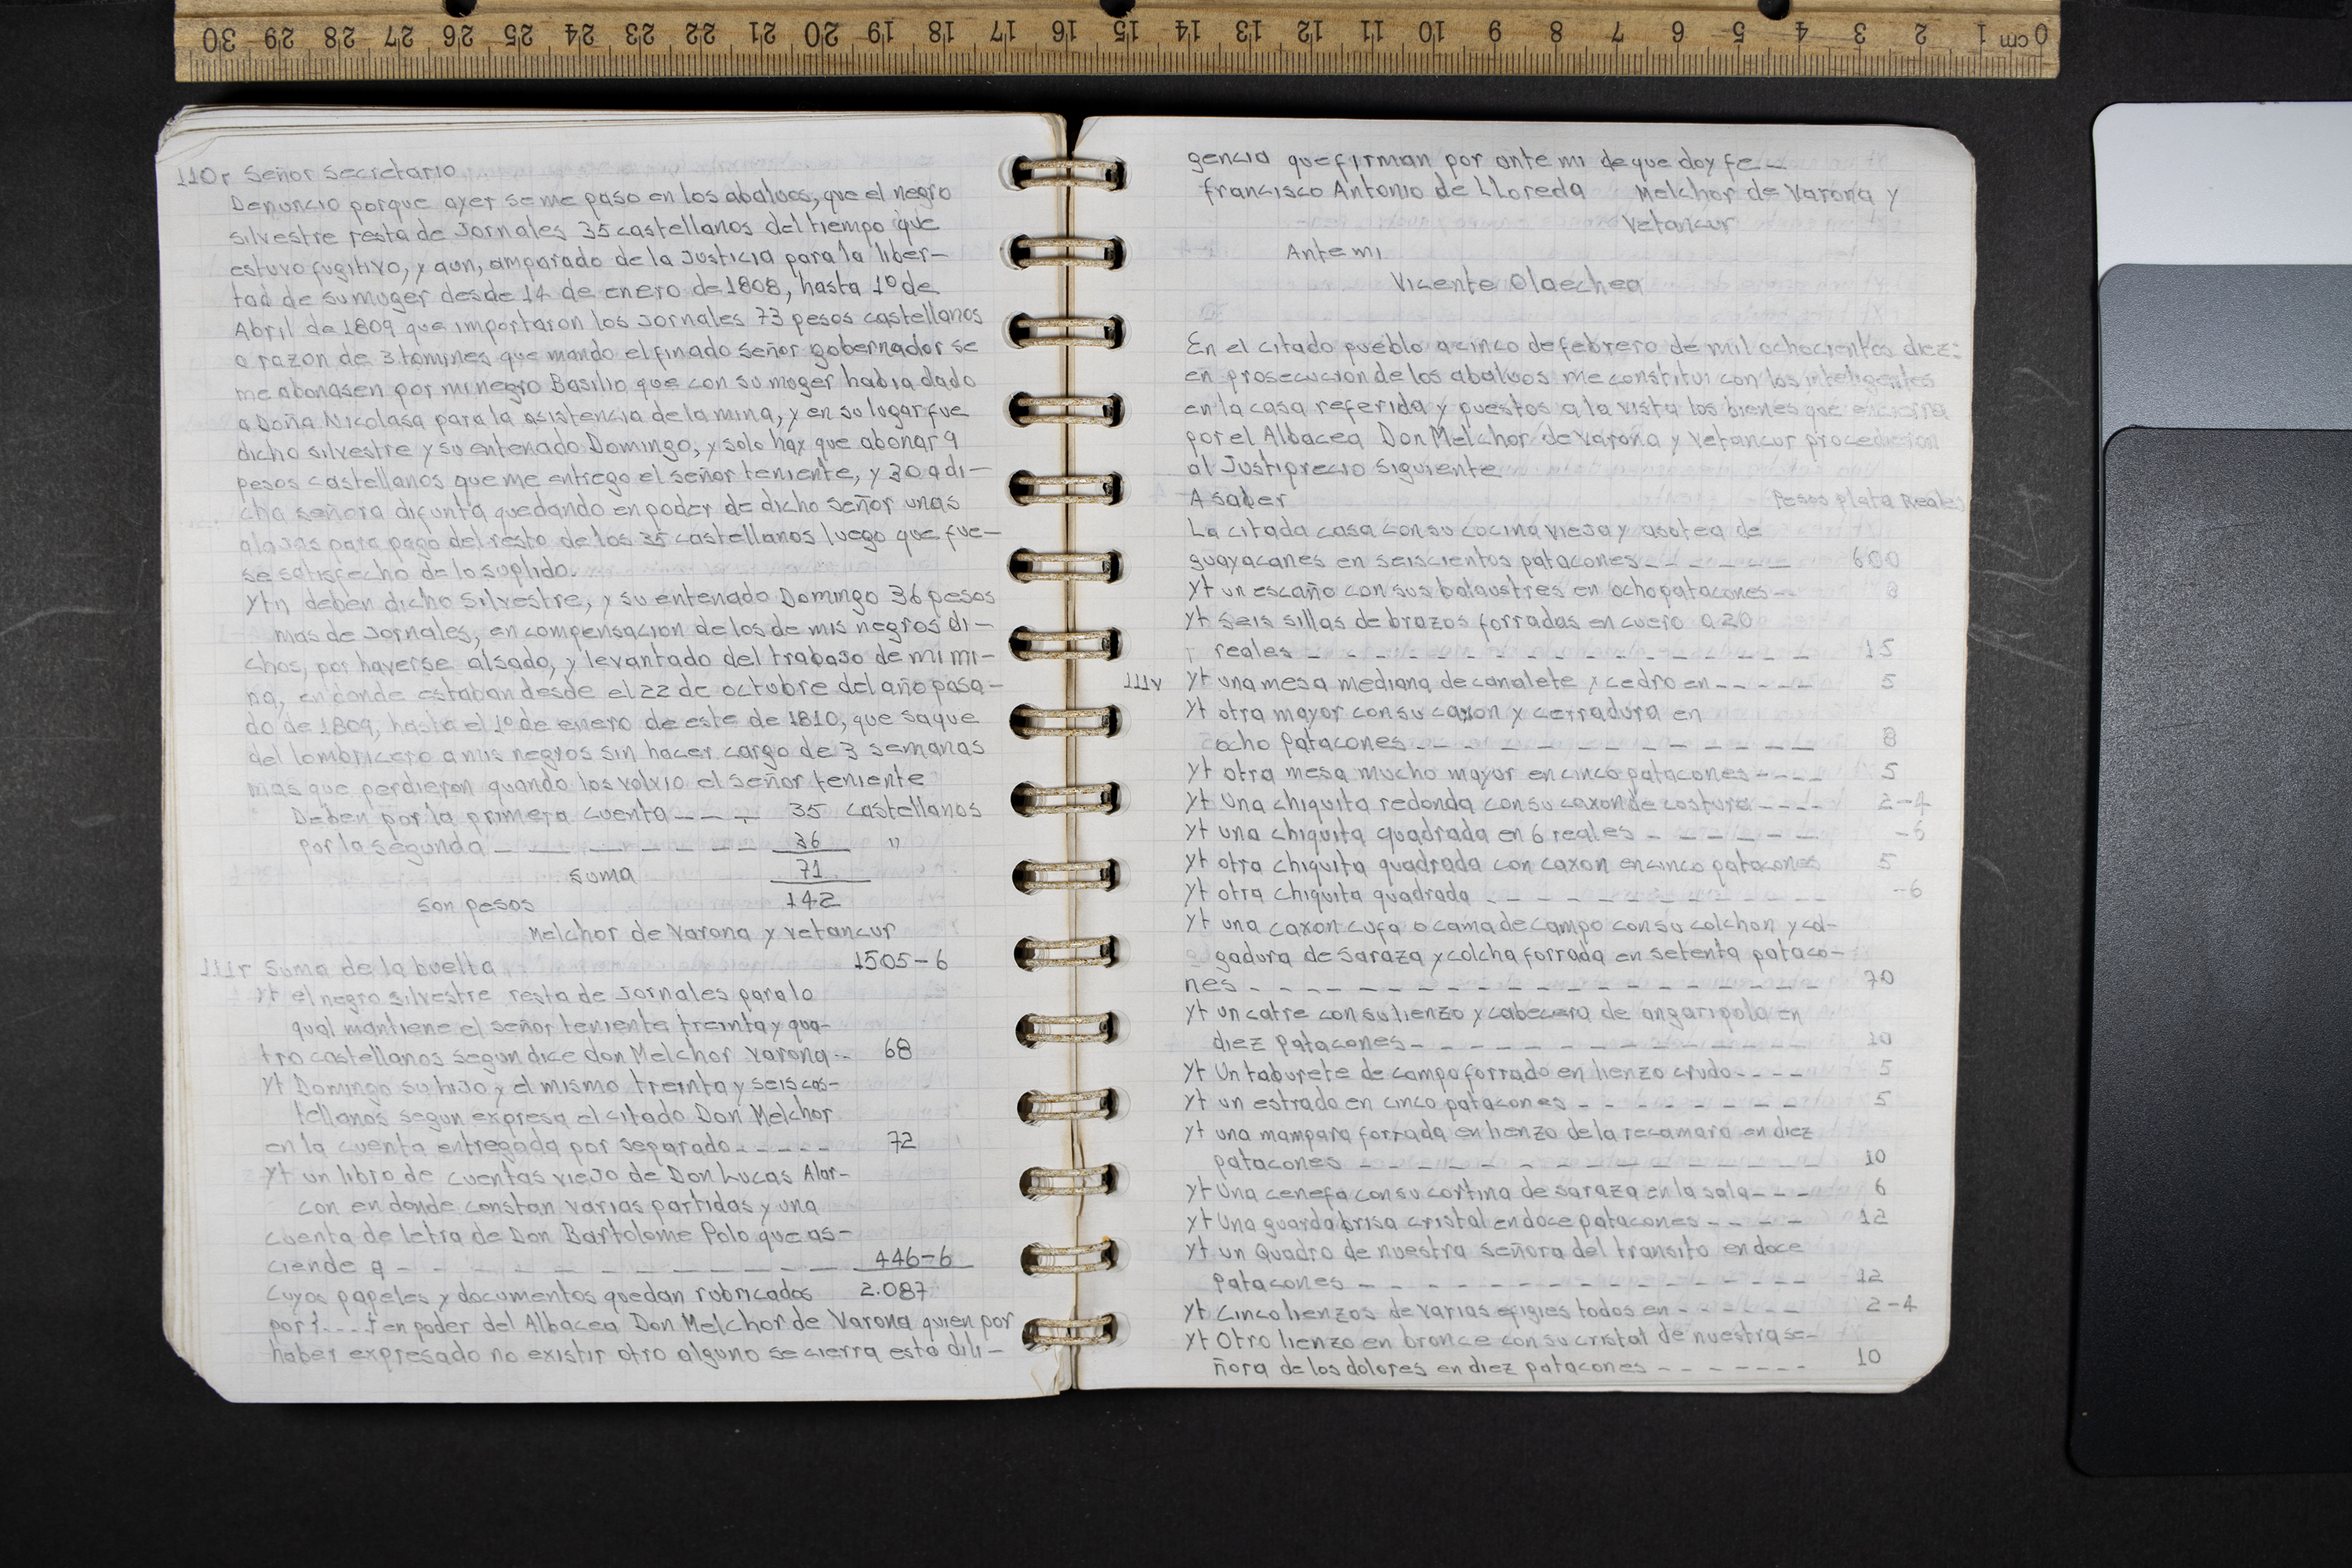 30 29 28 27 26 25 24 23 22 21 20 19 18 17 16 15 14 13 12 11 10 9 8 7 6 5 4 3 2 1 cm 0
110r Señor Secretario
Denuncio porque ayer se me paso en los abaluos, que el negro
Silvestre resta de Jornales 35 castellanos del tiempo que
estuvo fugitivo, y aun, amparado de la Justicia para la liber-
tad de su muger desde 14 de enero de 1808, hasta 1º de
Abril de 1809 que importaron los Jornales 73 pesos castellanos
a razon de 3 tomines que mando el finado Señor gobernador se
me abonasen por mi negro Basilio que con su muger habia dado
a Doña Nicolasa para la asistencia de la mina, y en su lugar fue
dicho Silvestre y su entenado Domingo, y solo hay que abonar 9
pesos castellanos que me entrego el señor teniente, y 30 a di-
cha señora difunta quedando en poder de dicho señor unas
alajas para pago del resto de los 35 castellanos luego que fue-
se satisfecho de lo suplido.
Ytn deben dicho Silvestre, y su entenado Domingo 36 pesos
mas de Jornales, en compensacion de los de mis negros di-
chos, por haverse alsado, y levantado del trabajo de mi mi-
na, en donde estaban desde el 22 de octubre del año pasa-
do de 1809, hasta el 1º de enero de este de 1810, que saque
del lombricero a mis negros sin hacer cargo de 3 semanas
mas que perdieron quando los volvio el señor teniente
Deben por la primera cuenta - - - - 35 castellanos
por la segunda - - - - - - - - 36 "
suma 71
son pesos 142
Melchor de Varona y Vetancur
111r Suma de la buelta 1505-6
Yt el negro Silvestre resta de Jornales para lo
qual mantiene el señor teniente treinta y qua-
tro castellanos segun dice don Melchor Varona-- 68
Yt Domingo su hijo y el mismo treinta y seis cas-
tellanos segun expresa el citado Don Melchor
en la cuenta entregada por separado - - - - - 72
Yt un libro de cuentas viejo de Don Lucas Alar-
con en donde constan varias partidas y una
cuenta de letra de Don Bartolome Polo que as-
ciende a - - - - - - - - - - - - 446-6
Cuyos papeles y documentos quedan rubricados 2.087
por {....} en poder del Albacea Don Melchor de Varona quien por
haber expresado no existir otro alguno se cierra esta dili-
gencia que firman por ante mi de que doy fe-
francisco Antonio de LLoreda Melchor de Varona y
Vetancur
Ante mi
Vicente Olaechea
En el citado pueblo a cinco de febrero de mil ochocientos diez:
en prosecucion de los abaluos me constitui con los inteligentes
en la casa referida y puestos a la vista los bienes que encierra
por el Albacea Don Melchor de Varona y Vetancur procedieron
al Justiprecio Siguiente
A saber Pesos plata Reales
La citada casa con su cocina vieja y asotea de
guayacanes en seiscientos patacones - - - - - - 600
Yt un escaño con sus balaustres en ocho patacones-- 8
Yt seis sillas de brazos forradas en cuero a 20
reales - - - - - - - - - - - - - - - - 15
111v Yt una mesa mediana de canalete y cedro en - - - - - 5
Yt otra mayor con su caxon y cerradura en
ocho patacones - - - - - - - - - - - - 8
Yt otra mesa mucho mayor en cinco patacones - - - - 5
Yt Una chiquita redonda con su caxon de costura - - - - 2-4
Yt una chiquita quadrada en 6 reales - - - - - - -6
Yt otra chiquita quadrada con caxon en cinco patacones 5
Yt otra chiquita quadrada - - - - - - - - - - --6
Yt una caxon cufa o cama de campo con su colchon y col-
gadura de saraza y colcha forrada en setenta pataco-
nes - - - - - - - - - - - - - - - - - - - - 70
Yt un catre con su lienzo y cabecera de angaripola en
diez patacones - - - - - - - - - - - - - 10
Yt Un taburete de campo forrado en lienzo crudo - - - - 5
Yt un estrado en cinco patacones - - - - - - - - 5
Yt una mampara forrada en lienzo de la recamara en diez
patacones - - - - - - - - - - - - - - - 10
Yt Una cenefa con su cortina de saraza en la sala - - - 6
Yt Una guarda brisa cristal en doce patacones - - - - 12
Yt un Quadro de nuestra señora del transito en doce
patacones - - - - - - - - - - - - - - 12
Yt Cinco lienzos de varias efigies todos en - - - - - - 2-4
Yt Otro lienzo en bronce con su cristal de nuestra se-
ñora de los dolores en diez patacones - - - - - - - 10